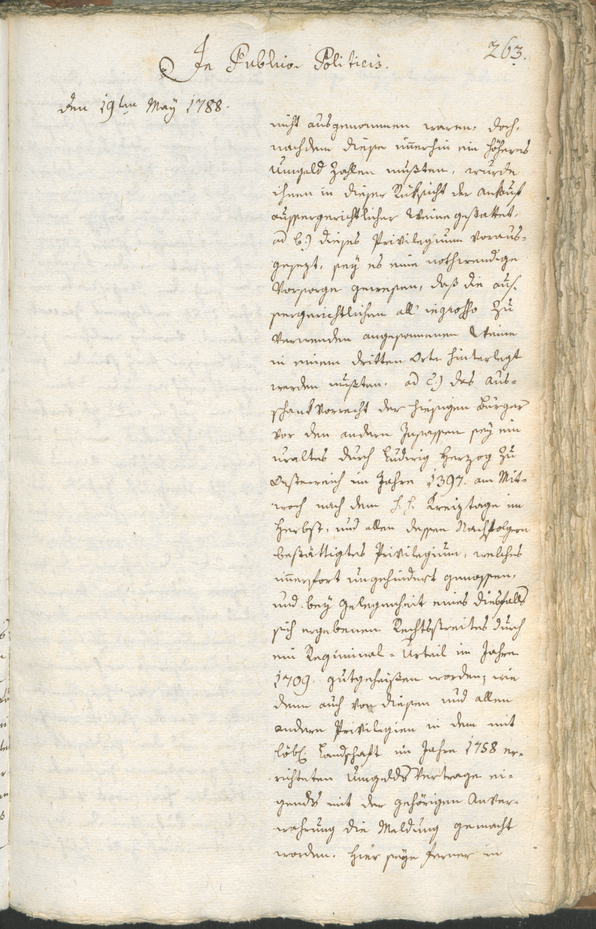 263.
In Publico-Politicis.
den 19ten May 1788.
nicht ausgenommen waren. doch,
nachdem diese immerhin ein höheres
Umgeld zahlen mußten, wurde
ihnen in dieser Rüksicht der
aussergerichtlicher Weine gestattet.
ad b.) dieses Privilegium voraus-
gesezt, sey es eine nothwendige
Vorsorge gewesen, daß die aus-
sergerichtlichen all' ingrosso zu
verwenden angesonnenen Weine
in einem dritten Orte hinterlegt
werden mußten. ad c.) das Aus-
schank Vorrecht der hiesigen Bürger
vor den andern Insassen sey ein
uraltes durch Ludwig Herzog zu
Oesterreich im Jahre 1397. am Mit-
woch nach dem h. h. Kreiztage im
Herbst, und allen dessen Nachfolgern
bestättigtes Privilegium, welches
immerfort ungehindert genossen,
und bey Gelegenheit eines diesfalls
sich ergebenen Rechtsstreites durch
ein Regiminal-Urteil im Jahre
1709. gutgeheißen worden; wie
denn auch von diesen und allen
andern Privilegien in dem mit
löbl. Landschaft im Jahre 1758 er-
richteten Umgelds Vertrage ei-
gends mit der gehörigen Anver-
wahrung die Meldung gemacht
worden. Hier seye ferner in